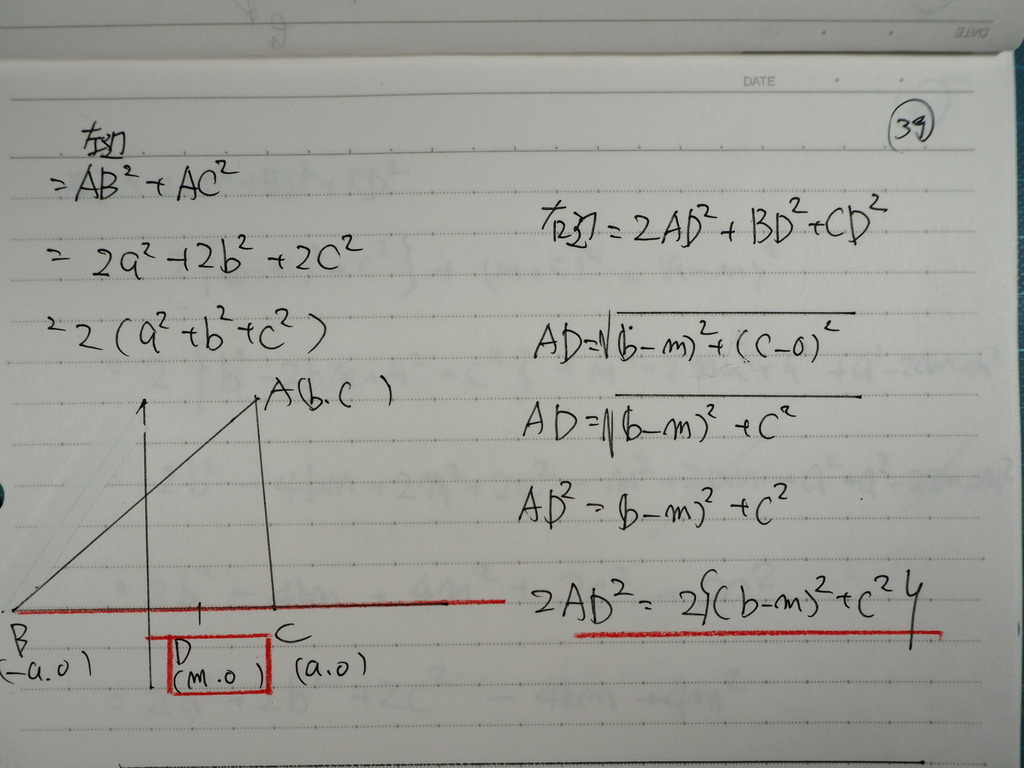 DATE
DATE
39
左辺
=AB²+AC²
=2a²+2b²+2c²
=2(a²+b²+c²)
A(b.c)
B
(-a.0)
D
(m.0)
C
(a.0)
右辺=2AD²+BD²+CD²
AD=√(b-m)²+(c-0)²
AD=√(b-m)²+c²
AD²=(b-m)²+c²
2AD²=2{(b-m)²+c²}